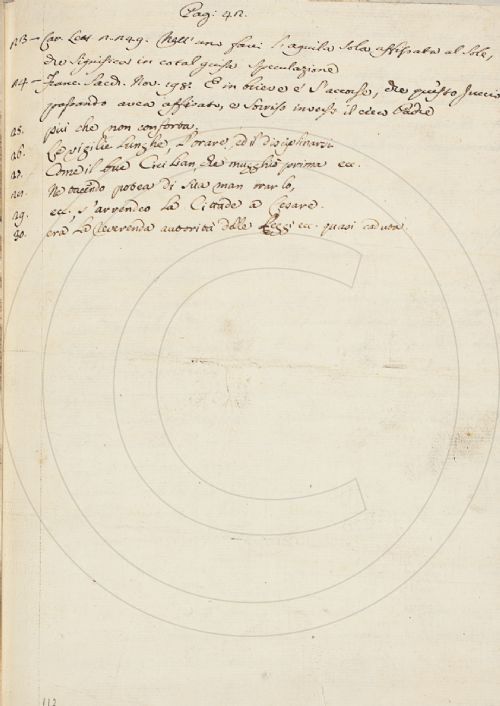 Pag: 42.
23 - Car. Lett. 2. 249. Nell' una farei l'aquila sola affissata al sole,
che significa in cotal guisa speculazione
24 - Franc. Sacch. Nov. 198. E in brieve s'accorse, che questo
passando avea affisato, e
25. più che non conforta
26. Le vigilie lunghe, l'orare, ed il disciplinarsi
27. Come il bue Cicilian, che mugghiò prima ec.
28. Ne tacendo potea di sua man trarlo,
29. ec. s'arrendeo la Cittade a Cesare.
30. era la reverenda autorità delle Leggi ec. quasi caduta
112